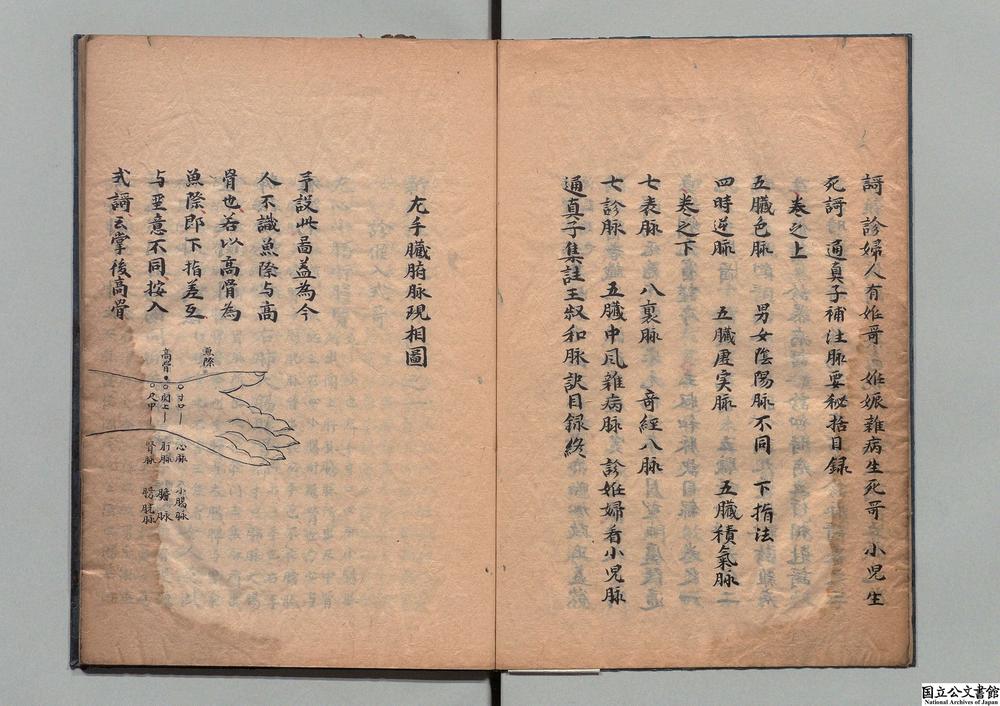 謌　診婦人有妊哥　妊娠雜病生死哥　小児生
死謌　通真子補注脉要秘括目録
卷之上
五臓色脉　男女陰陽脉不同　下指法
四時逆脉　五臓虚实脉　五臓積氣脉二
卷之下
七表脉　八裏脉　奇經八脉
七診脉　五臓中風雜病脉　診妊婦看小児脉
通真子集註王叔和脉訣目録終
左手臓腑脉現相圖
予設此啚盖為今
人不識魚際与高
骨也若以高骨為
魚際即下指差互
与至意不同按入
式謌云掌後高骨
魚際
高骨
寸口
関上
尺中
心脉
肝脉
腎脉
小膓脉
膽脉
膀胱脉
国立公文書館
National Archives of Japan